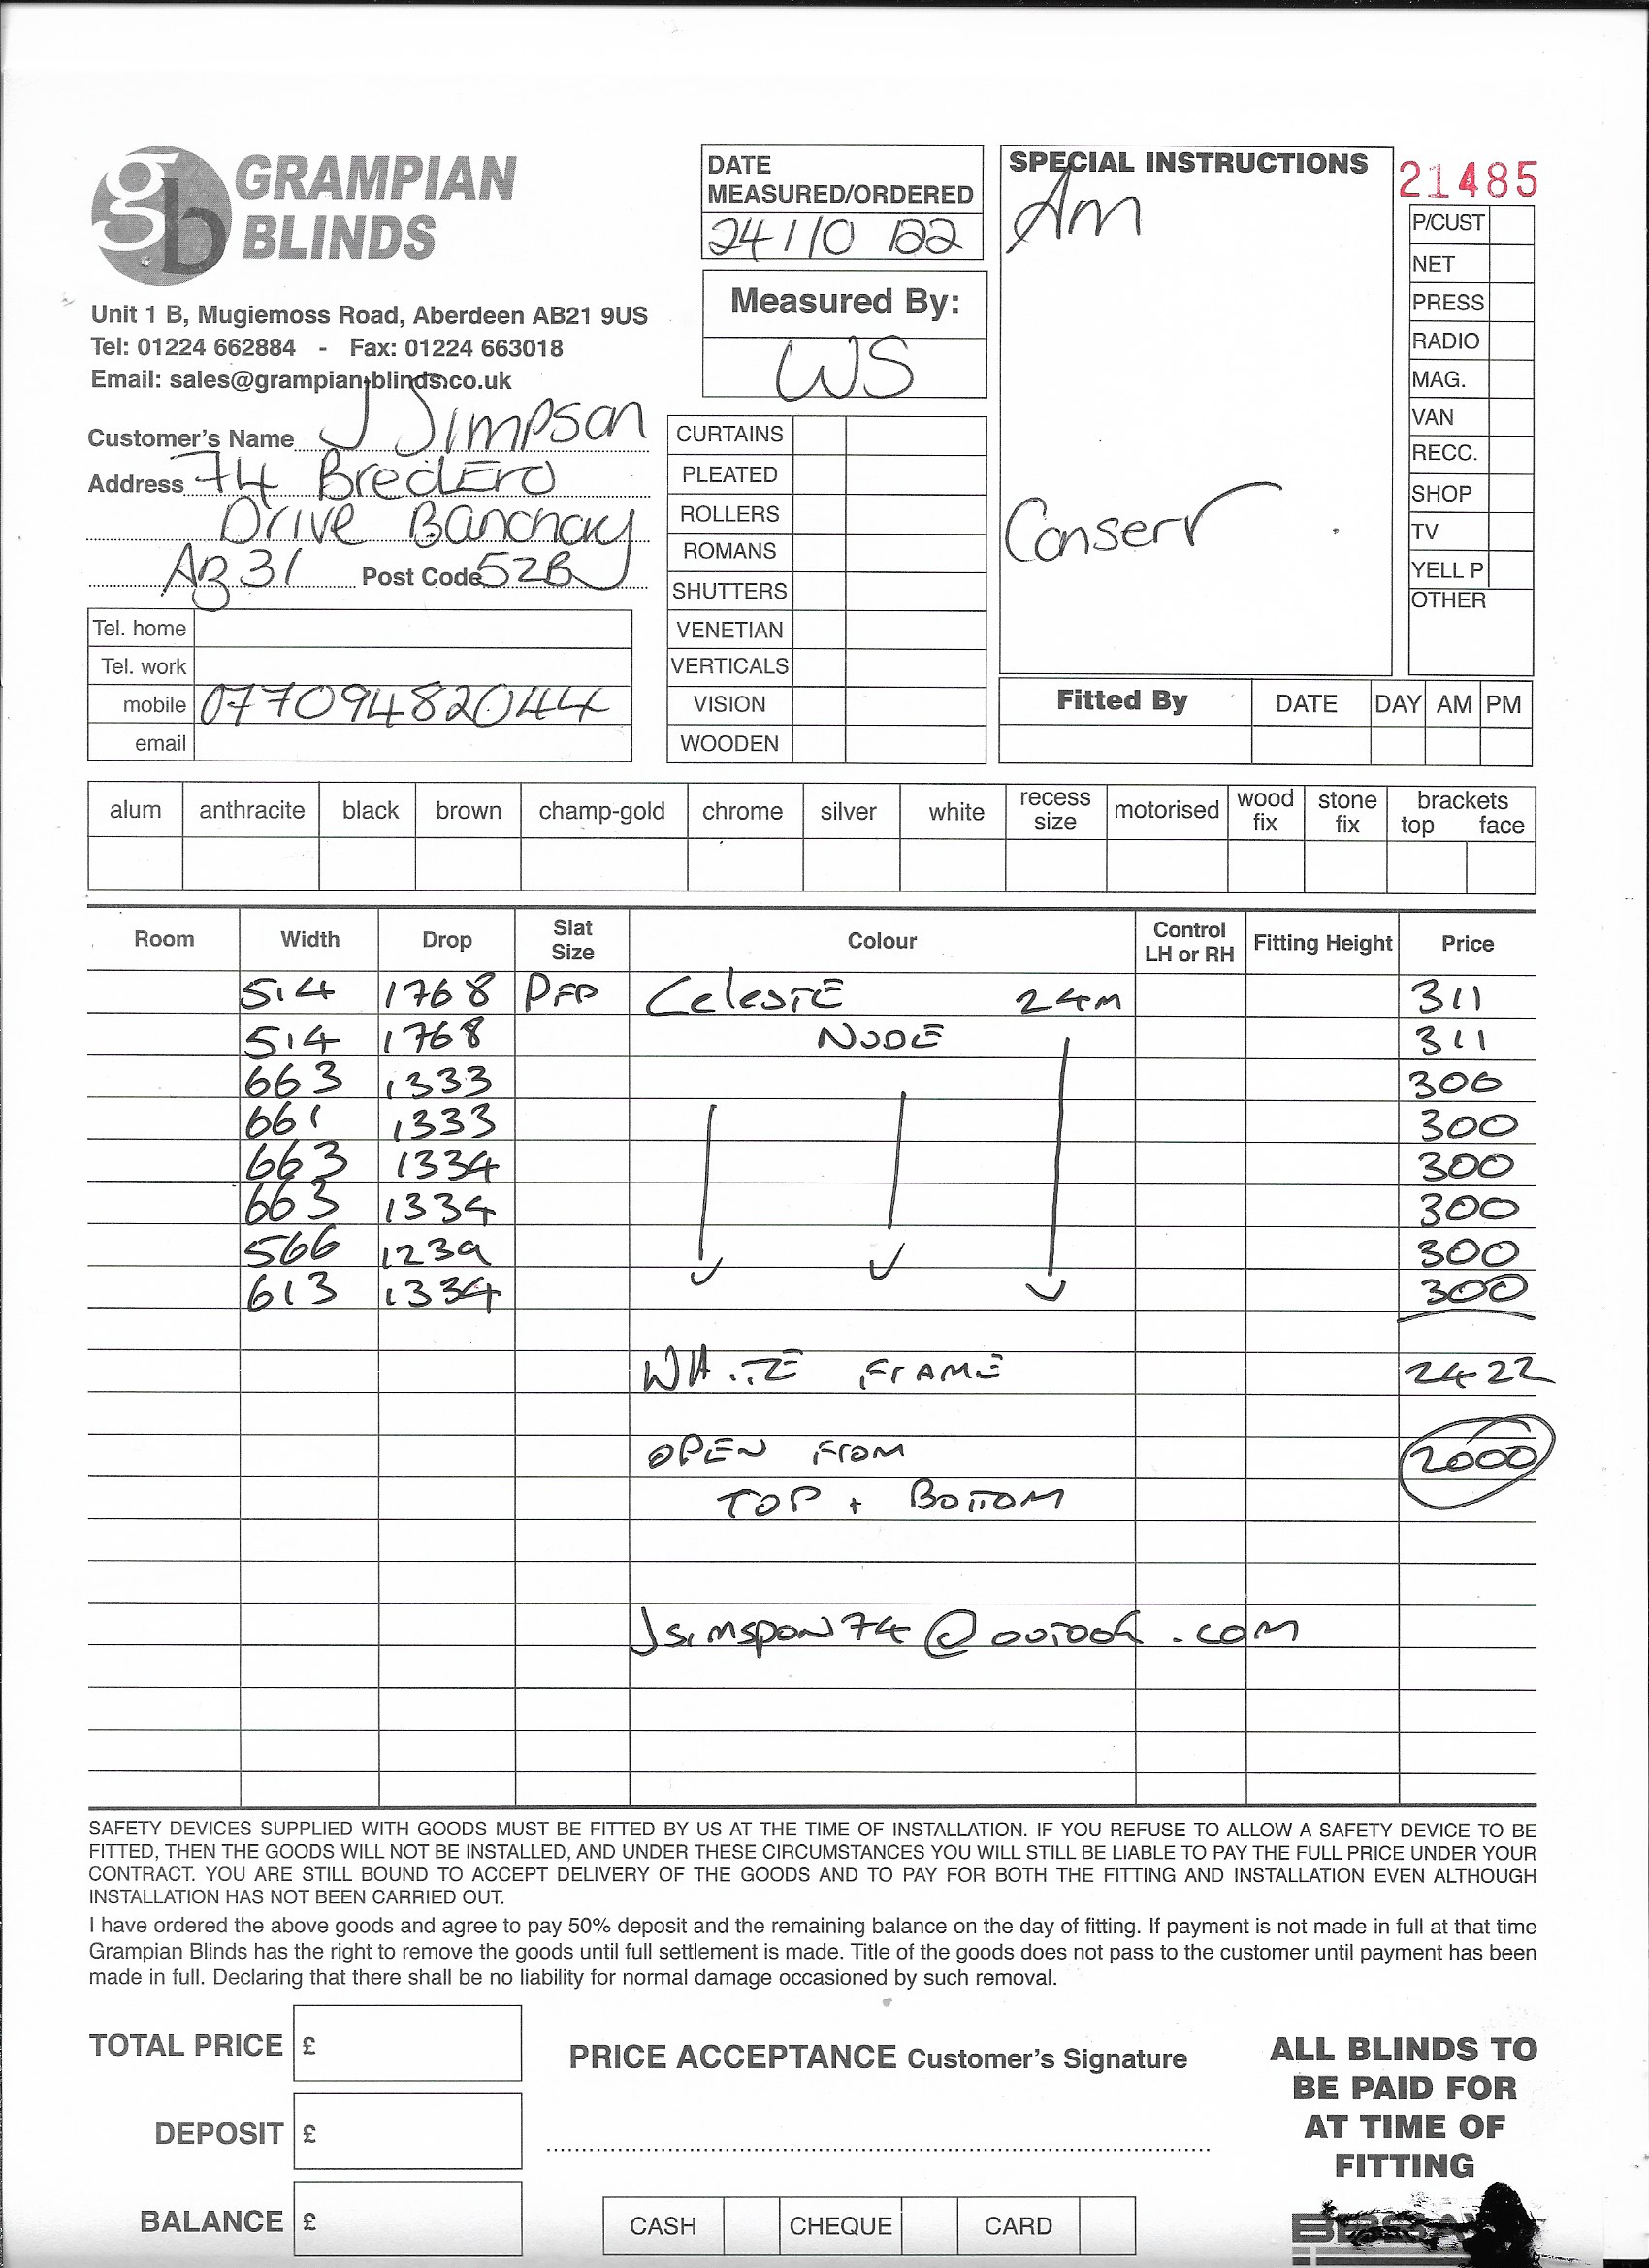 GRAMPIAN
BLINDS
Unit 1 B, Mugiemoss Road, Aberdeen AB21 9US
Tel: 01224 662884 - Fax: 01224 663018
Email: sales@grampian-blinds.co.uk
Customer's Name J Simpson
Address 74 Bredero
Drive Banchory
AB31 Post Code 5ZB
Tel. home
Tel. work
mobile 07709482044
email
DATE
MEASURED/ORDERED
24/10/22
Measured By:
WS
CURTAINS
PLEATED
ROLLERS
ROMANS
SHUTTERS
VENETIAN
VERTICALS
VISION
WOODEN
SPECIAL INSTRUCTIONS
Am
Conserv
21485
P/CUST
NET
PRESS
RADIO
MAG.
VAN
RECC.
SHOP
TV
YELL P
OTHER
Fitted By DATE DAY AM PM
alum anthracite black brown champ-gold chrome silver white recess size motorised wood fix stone fix brackets top face
Room Width Drop Slat Size Colour Control LH or RH Fitting Height Price
514 1768 PFP Celeste 24m 311
514 1768 NUDE 311
663 1333 300
661 1333 300
663 1334 300
663 1334 300
566 1239 300
613 1334 300
WHITE FRAME 2422
OPEN FROM 2000
TOP + BOTTOM
Jsimspon74@outook.com
SAFETY DEVICES SUPPLIED WITH GOODS MUST BE FITTED BY US AT THE TIME OF INSTALLATION. IF YOU REFUSE TO ALLOW A SAFETY DEVICE TO BE
FITTED, THEN THE GOODS WILL NOT BE INSTALLED, AND UNDER THESE CIRCUMSTANCES YOU WILL STILL BE LIABLE TO PAY THE FULL PRICE UNDER YOUR
CONTRACT. YOU ARE STILL BOUND TO ACCEPT DELIVERY OF THE GOODS AND TO PAY FOR BOTH THE FITTING AND INSTALLATION EVEN ALTHOUGH
INSTALLATION HAS NOT BEEN CARRIED OUT.
I have ordered the above goods and agree to pay 50% deposit and the remaining balance on the day of fitting. If payment is not made in full at that time
Grampian Blinds has the right to remove the goods until full settlement is made. Title of the goods does not pass to the customer until payment has been
made in full. Declaring that there shall be no liability for normal damage occasioned by such removal.
TOTAL PRICE £
DEPOSIT £
BALANCE £
PRICE ACCEPTANCE Customer's Signature
CASH CHEQUE CARD
ALL BLINDS TO
BE PAID FOR
AT TIME OF
FITTING